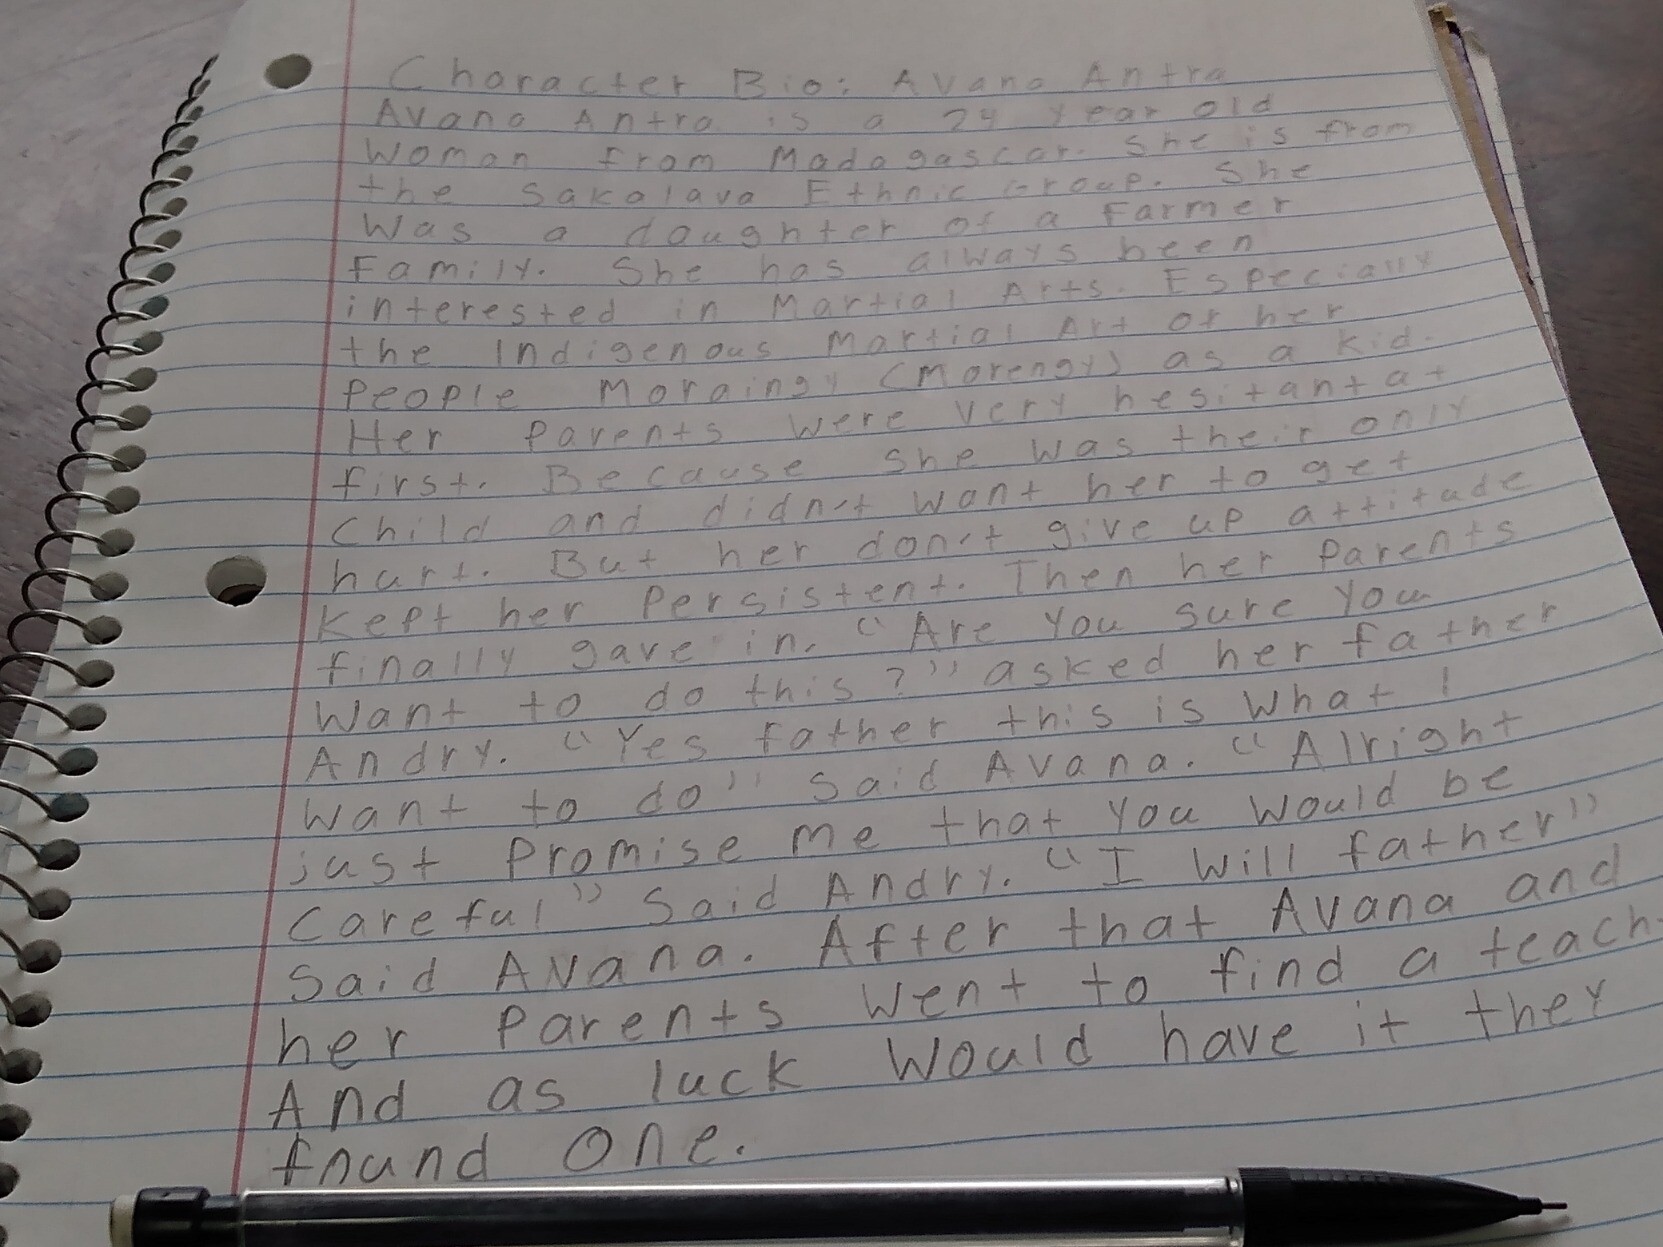 Character Bio: Avana Antra
Avana Antra is a 24 year old
Woman from Madagascar. She is from
the Sakalava Ethnic Group. She
Was a daughter of a Farmer
Family. She has always been
interested in Martial Arts. Especially
the Indigenous Martial Art of her
People Moraingy (Morengy) as a kid.
Her Parents were very hesitant at
first. Because she was their only
Child and didn't want her to get
hurt. But her don't give up attitude
Kept her Persistent. Then her Parents
finally gave in. "Are you sure you
Want to do this?" asked her father
Andry. "Yes father this is what I
want to do" Said Avana. "Alright
just Promise me that you would be
Careful" Said Andry. "I will father"
Said Avana. After that Avana and
her Parents went to find a teach
And as luck would have it they
found one.